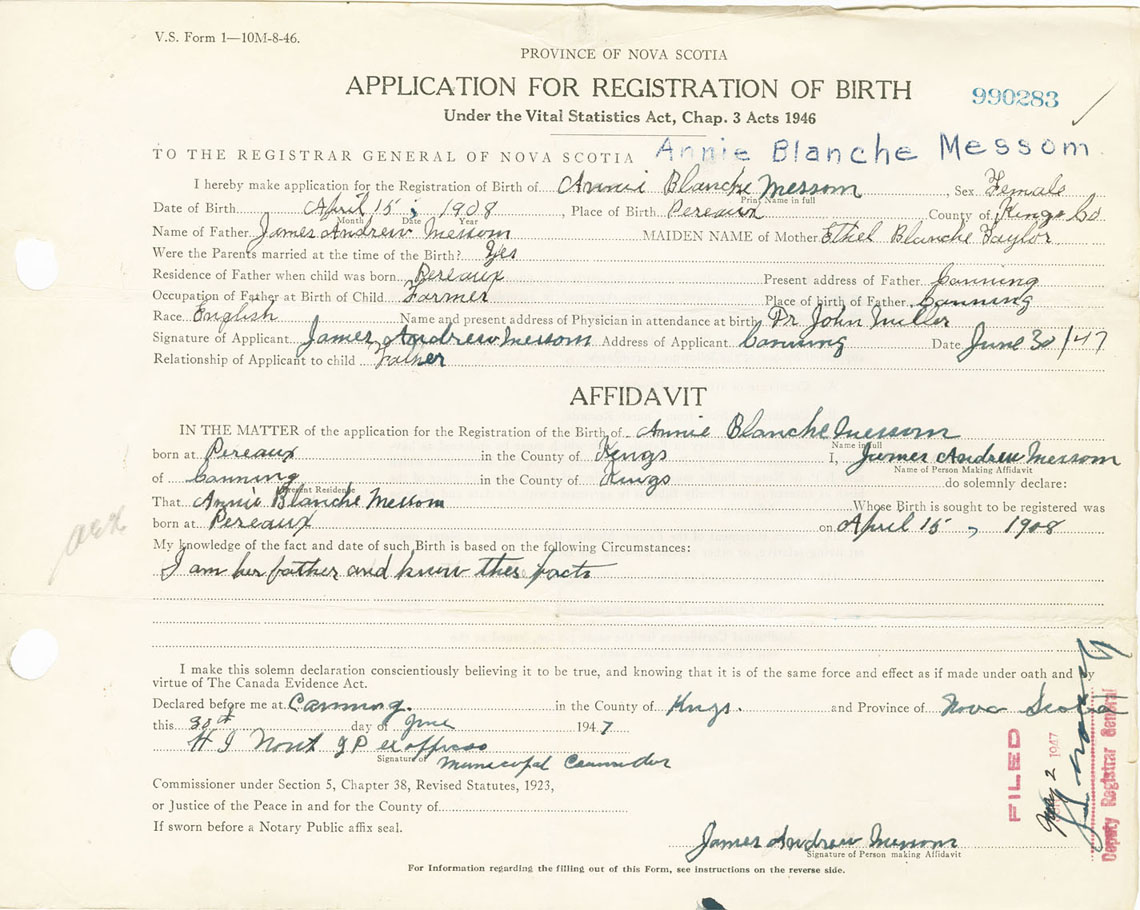 V.S. Form 1—10M-8-46.
PROVINCE OF NOVA SCOTIA
APPLICATION FOR REGISTRATION OF BIRTH
990283
Under the Vital Statistics Act, Chap. 3 Acts 1946
TO THE REGISTRAR GENERAL OF NOVA SCOTIA Annie Blanche Messom
I hereby make application for the Registration of Birth of Annie Blanche Messom, Sex Female
Print Name in full
Date of Birth April 15, 1908, Place of Birth Pereaux County of Kings Co
Month Date Year
Name of Father James Andrew Messom MAIDEN NAME of Mother Ethel Blanche Taylor
Were the Parents married at the time of the Birth? Yes
Residence of Father when child was born Pereaux Present address of Father Canning
Occupation of Father at Birth of Child Farmer Place of birth of Father Canning
Race English Name and present address of Physician in attendance at birth Dr John Miller
Signature of Applicant James Andrew Messom Address of Applicant Canning Date June 30/47
Relationship of Applicant to child Father
AFFIDAVIT
IN THE MATTER of the application for the Registration of the Birth of Annie Blanche Messom
Name in full
born at Pereaux in the County of Kings I, James Andrew Messom
Name of Person Making Affidavit
of Canning in the County of Kings do solemnly declare:
Present Residence
That Annie Blanche Messom Whose Birth is sought to be registered was
born at Pereaux on April 15, 1908
My knowledge of the fact and date of such Birth is based on the following Circumstances:
I am her father and know thes facts
I make this solemn declaration conscientiously believing it to be true, and knowing that it is of the same force and effect as if made under oath and by
virtue of The Canada Evidence Act.
Declared before me at Canning. in the County of Kings. and Province of Nova Scotia
this 30th day of June 1947
H J North J P ex officio
Signature of Municipal Councillor
Commissioner under Section 5, Chapter 38, Revised Statutes, 1923,
or Justice of the Peace in and for the County of
If sworn before a Notary Public affix seal.
James Andrew Messom
Signature of Person making Affidavit
For Information regarding the filling out of this Form, see instructions on the reverse side.
FILED
2 1947
Deputy Registrar General